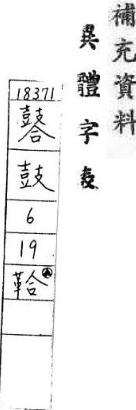 補充資料
異體字表
18371
鼛
鼓
6
19
鞈